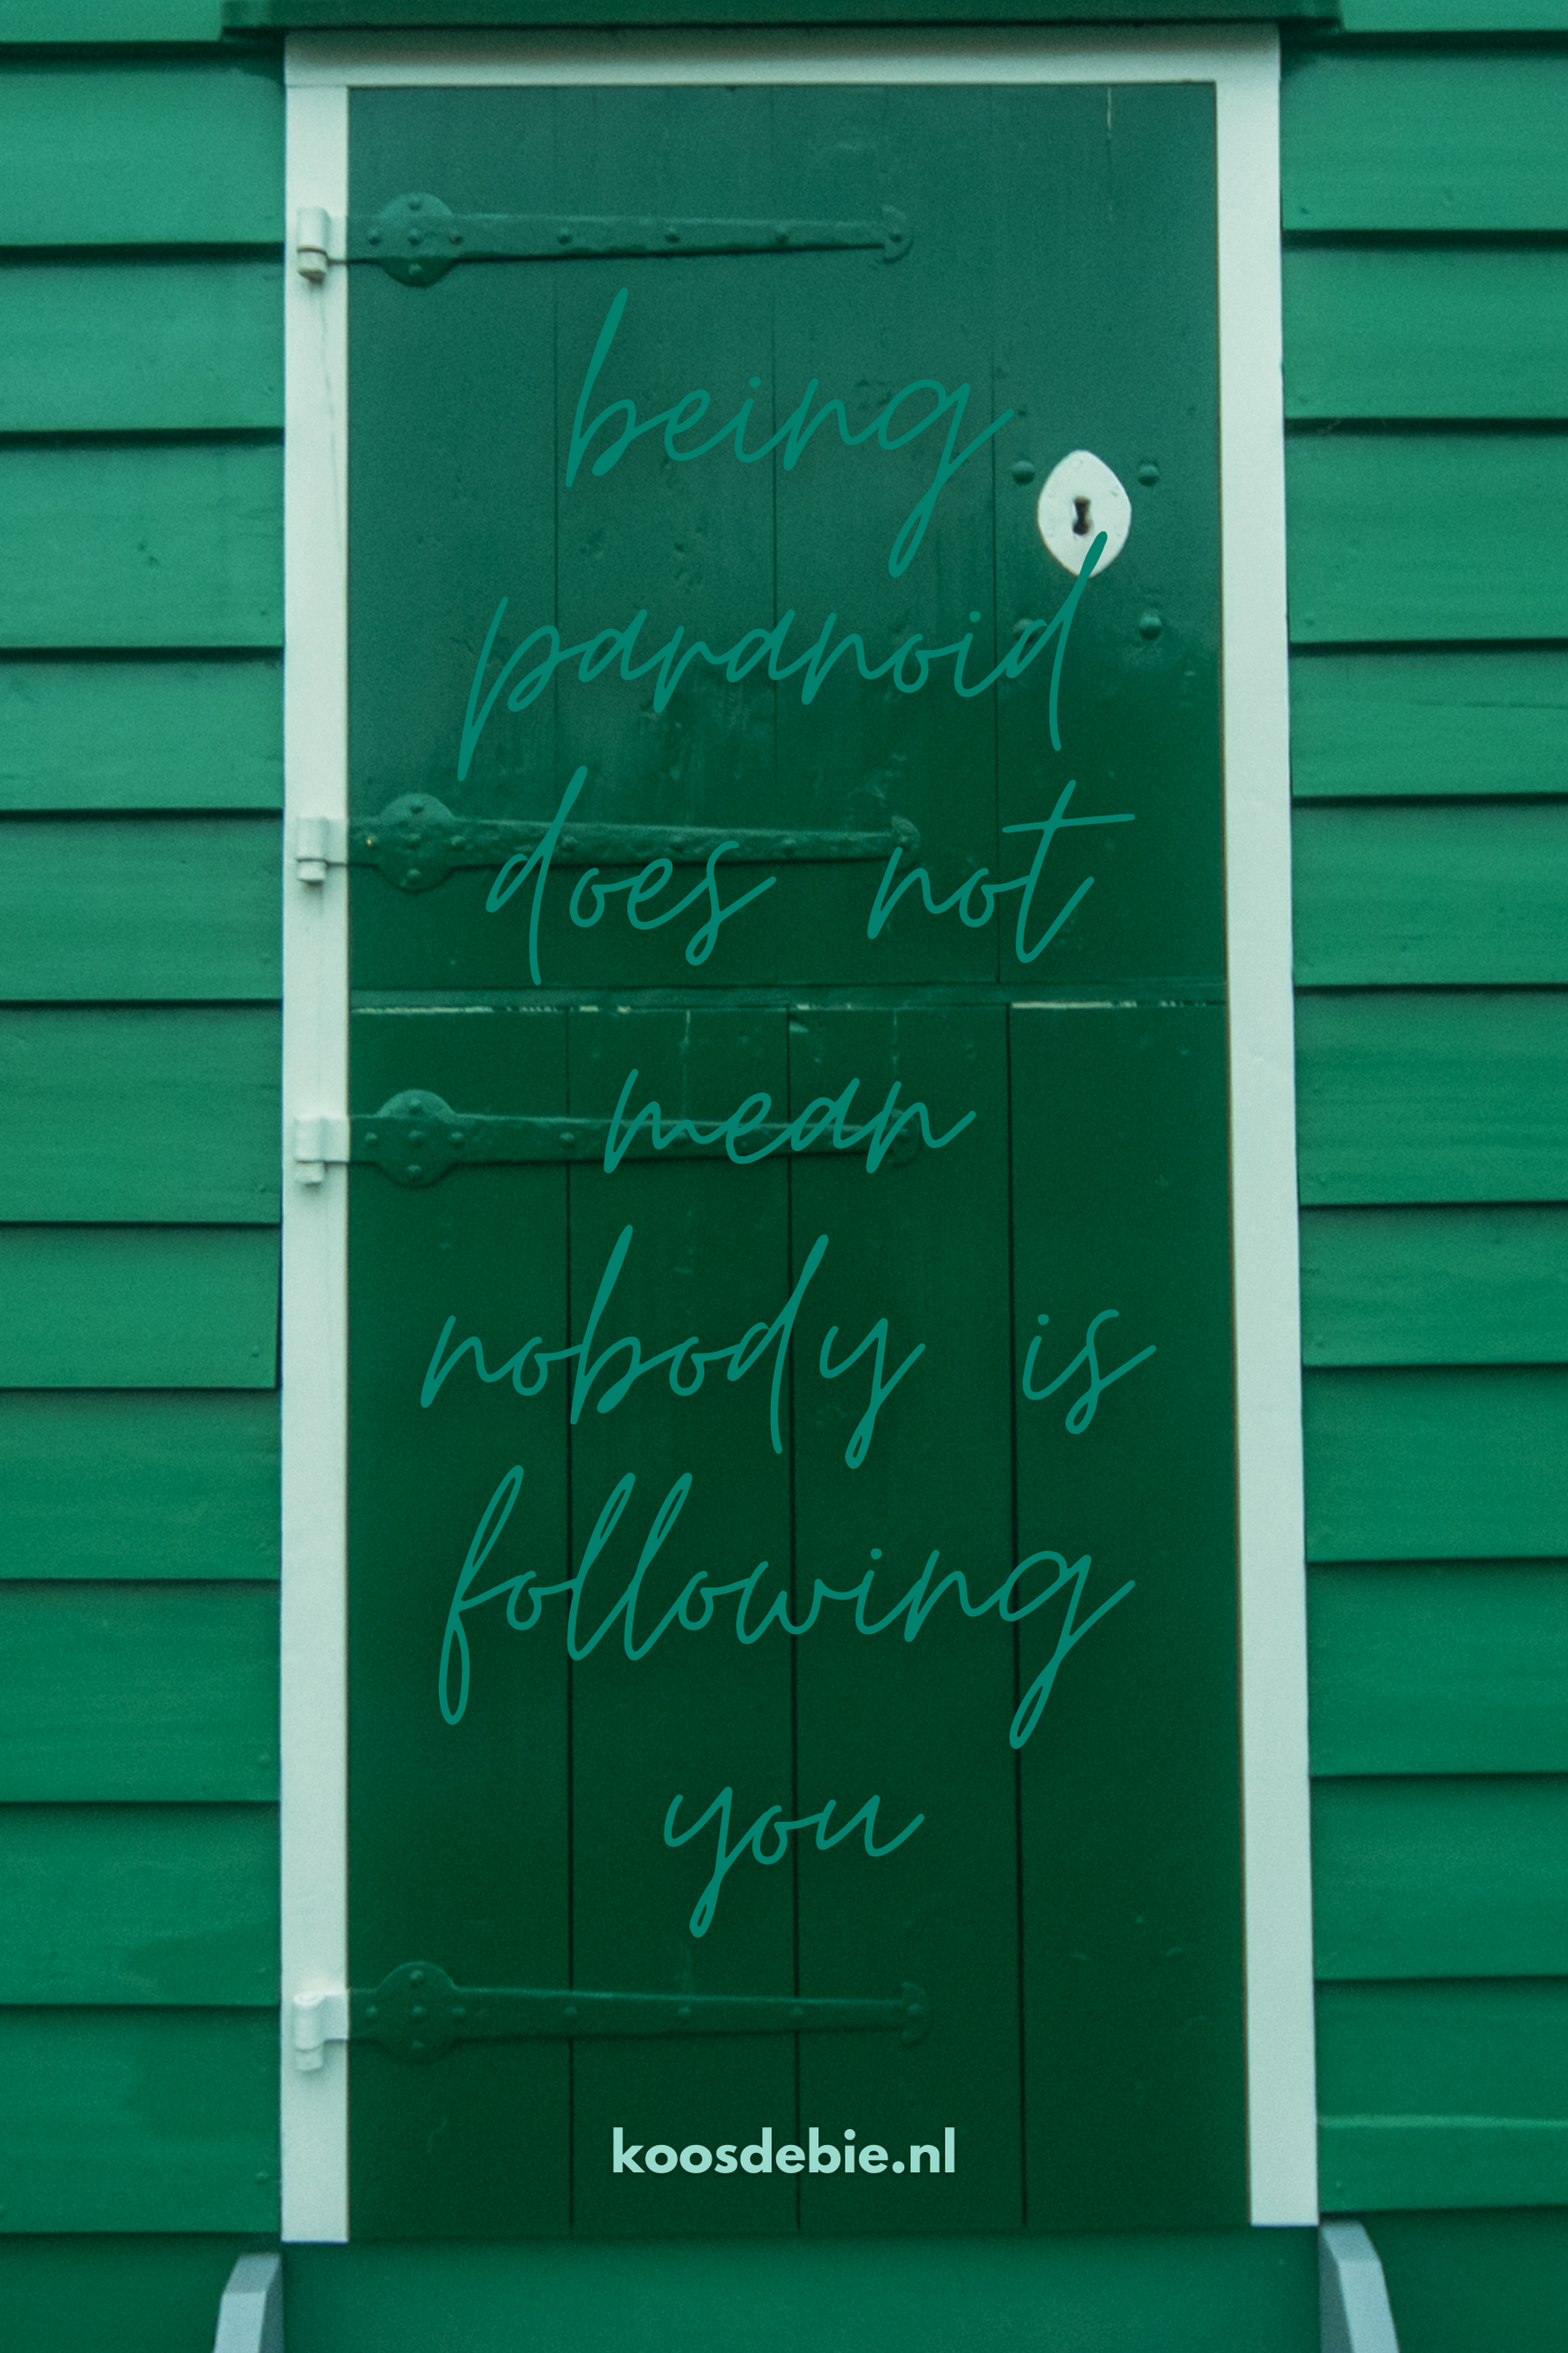 being
paranoid
does not
mean
nobody is
following
you
koosdebie.nl